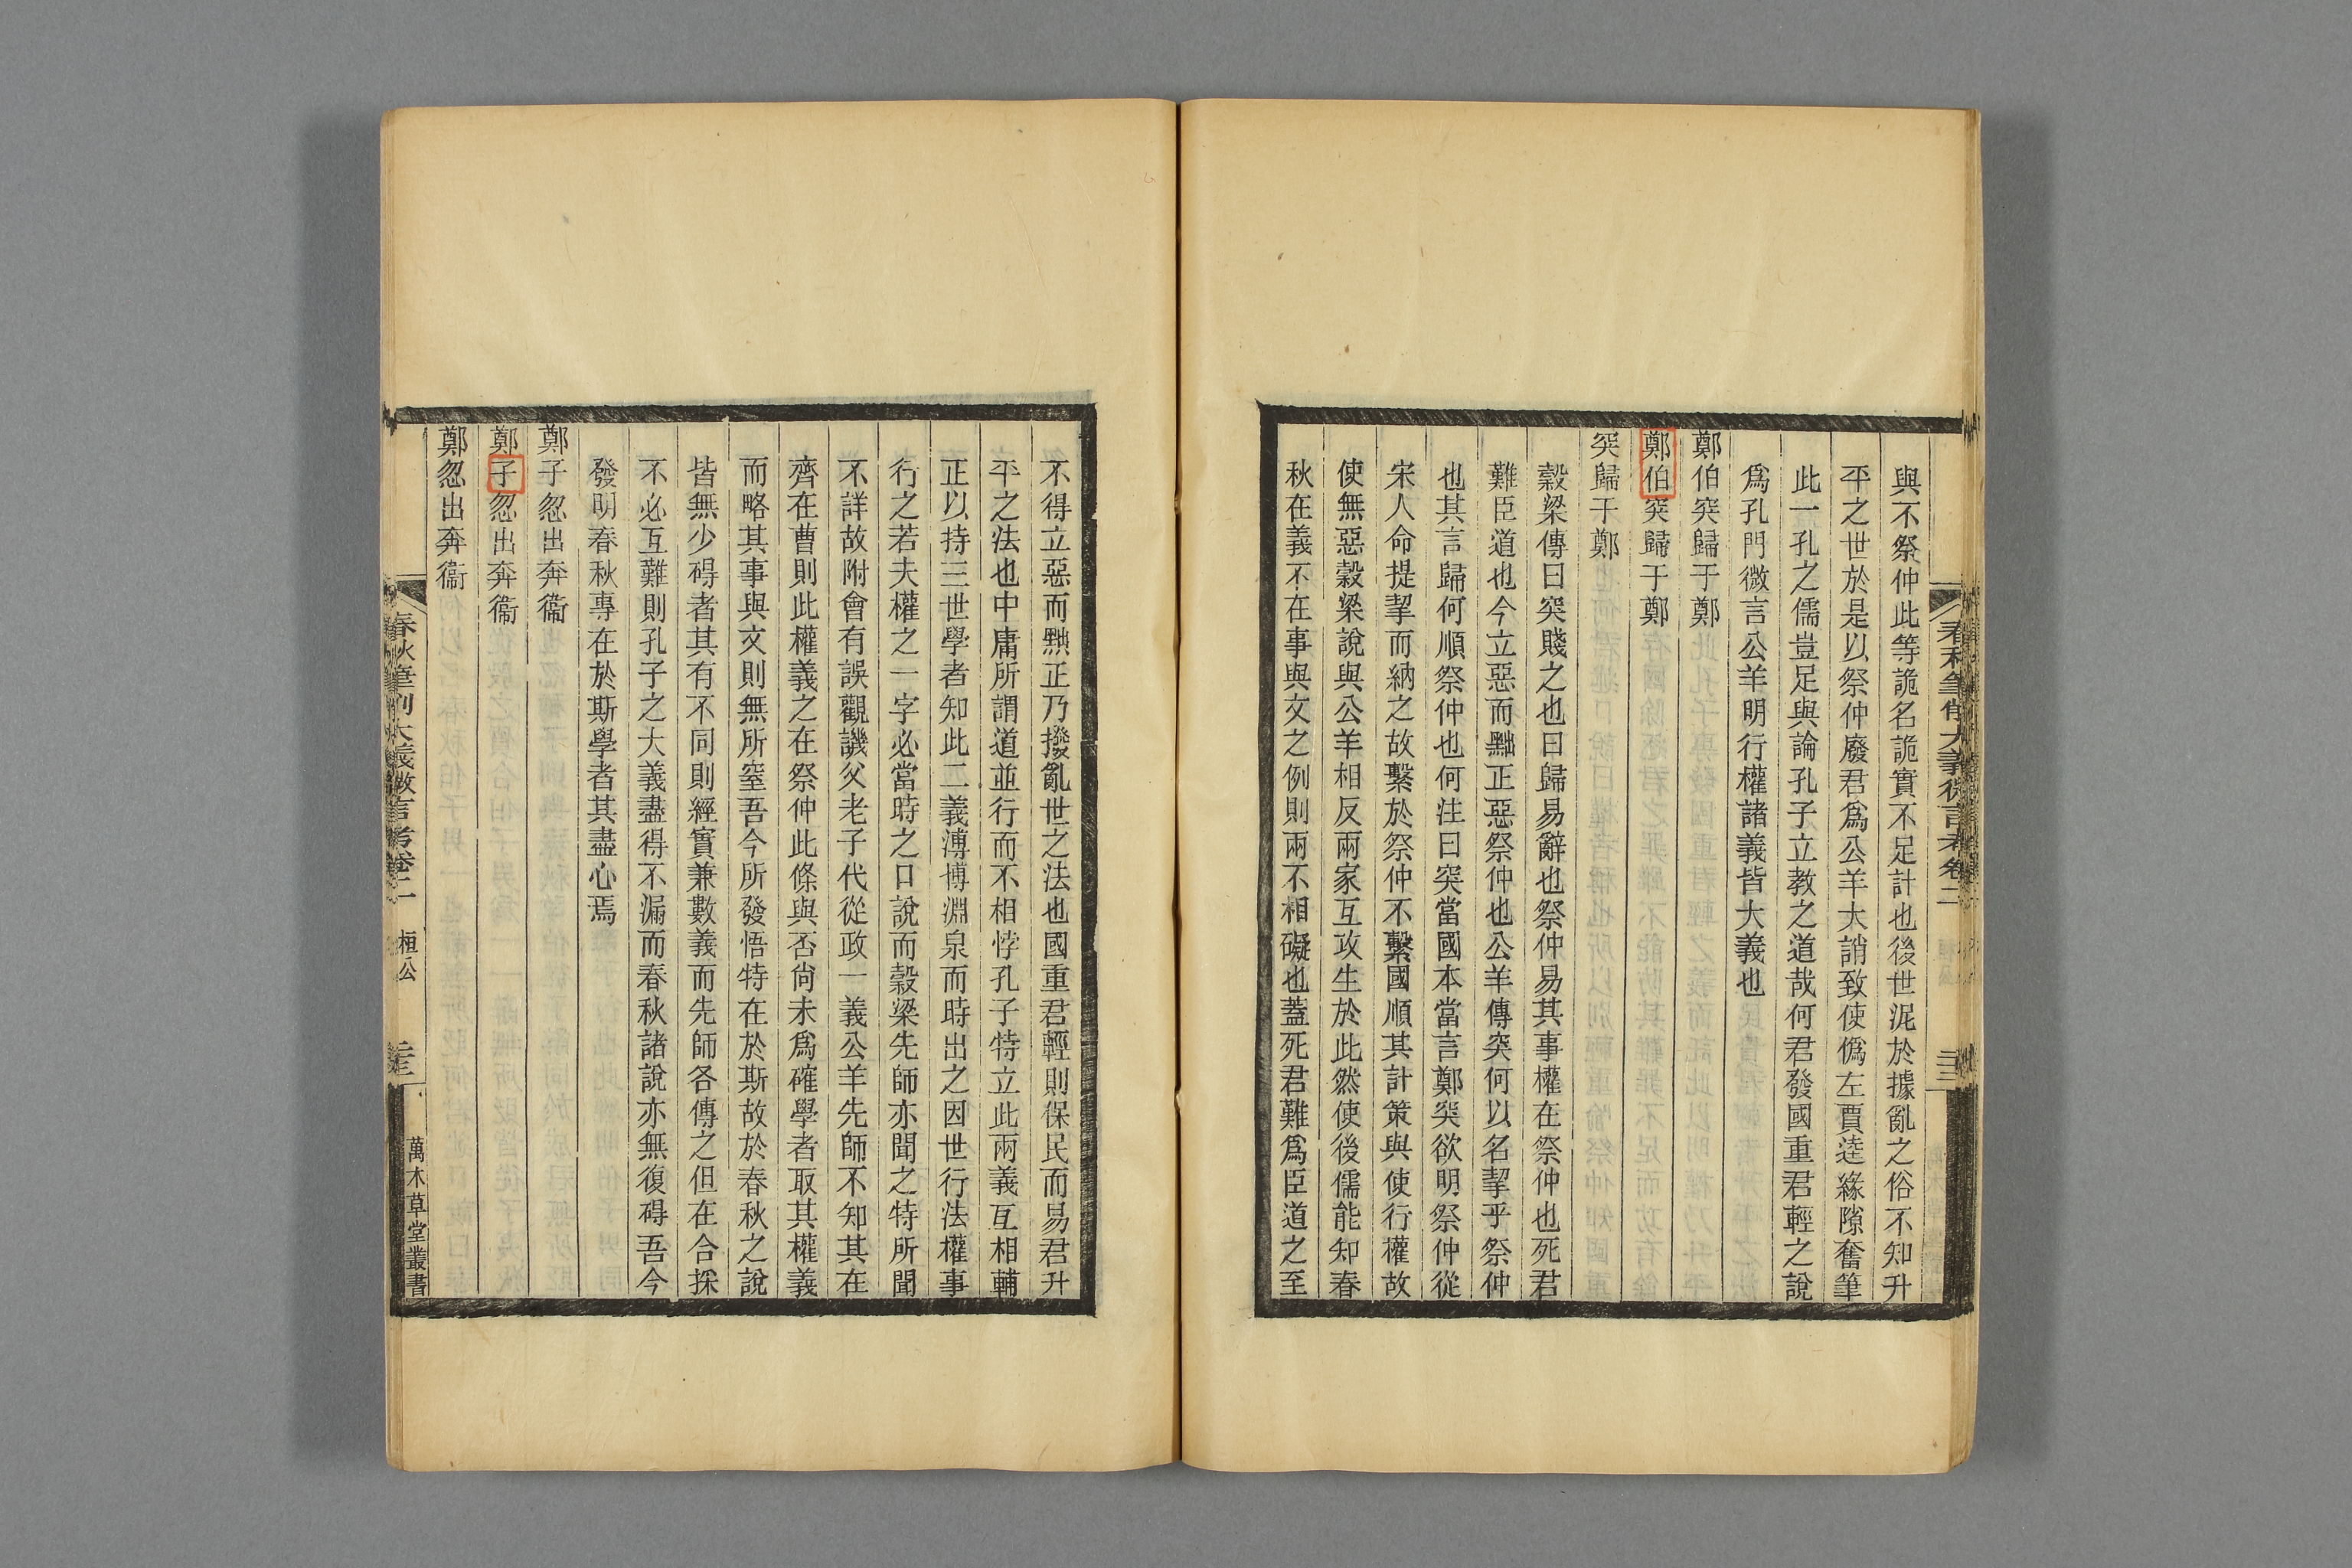 春秋筆削大義微言考卷二
與不祭仲此等詭名詭實不足計也後世泥於據亂之俗不知升
平之世於是以祭仲廢君爲公羊大誚致使僞左賈逵緣隙奮筆
此一孔之儒豈足與論孔子立教之道哉何君發國重君輕之說
爲孔門微言公羊明行權諸義皆大義也
鄭伯突歸于鄭
鄭伯突歸于鄭
突歸于鄭
穀梁傳曰突賤之也曰歸易辭也祭仲易其事權在祭仲也死君
難臣道也今立惡而黜正惡祭仲也公羊傳突何以名挈乎祭仲
也其言歸何順祭仲也何注曰突當國本當言鄭突欲明祭仲從
宋人命提挈而納之故繫於祭仲不繫國順其計策與使行權故
使無惡穀梁說與公羊相反兩家互攻生於此然使後儒能知春
秋在義不在事與文之例則兩不相礙也蓋死君難爲臣道之至
不得立惡而黜正乃撥亂世之法也國重君輕則保民而易君升
平之法也中庸所謂道並行而不相悖孔子特立此兩義互相輔
正以持三世學者知此二義溥博淵泉而時出之因世行法權事
行之若夫權之一字必當時之口說而穀梁先師亦聞之特所聞
不詳故附會有誤觀譏父老子代從政一義公羊先師不知其在
齊在曹則此權義之在祭仲此條與否尙未爲確學者取其權義
而略其事與文則無所窒吾今所發悟特在於斯故於春秋之說
皆無少碍者其有不同則經實兼數義而先師各傳之但在合採
不必互難則孔子之大義盡得不漏而春秋諸說亦無復碍吾今
發明春秋專在於斯學者其盡心焉
鄭子忽出奔衞
鄭子忽出奔衞
鄭忽出奔衞
春秋筆削大義微言考卷二 桓公
萬木草堂叢書